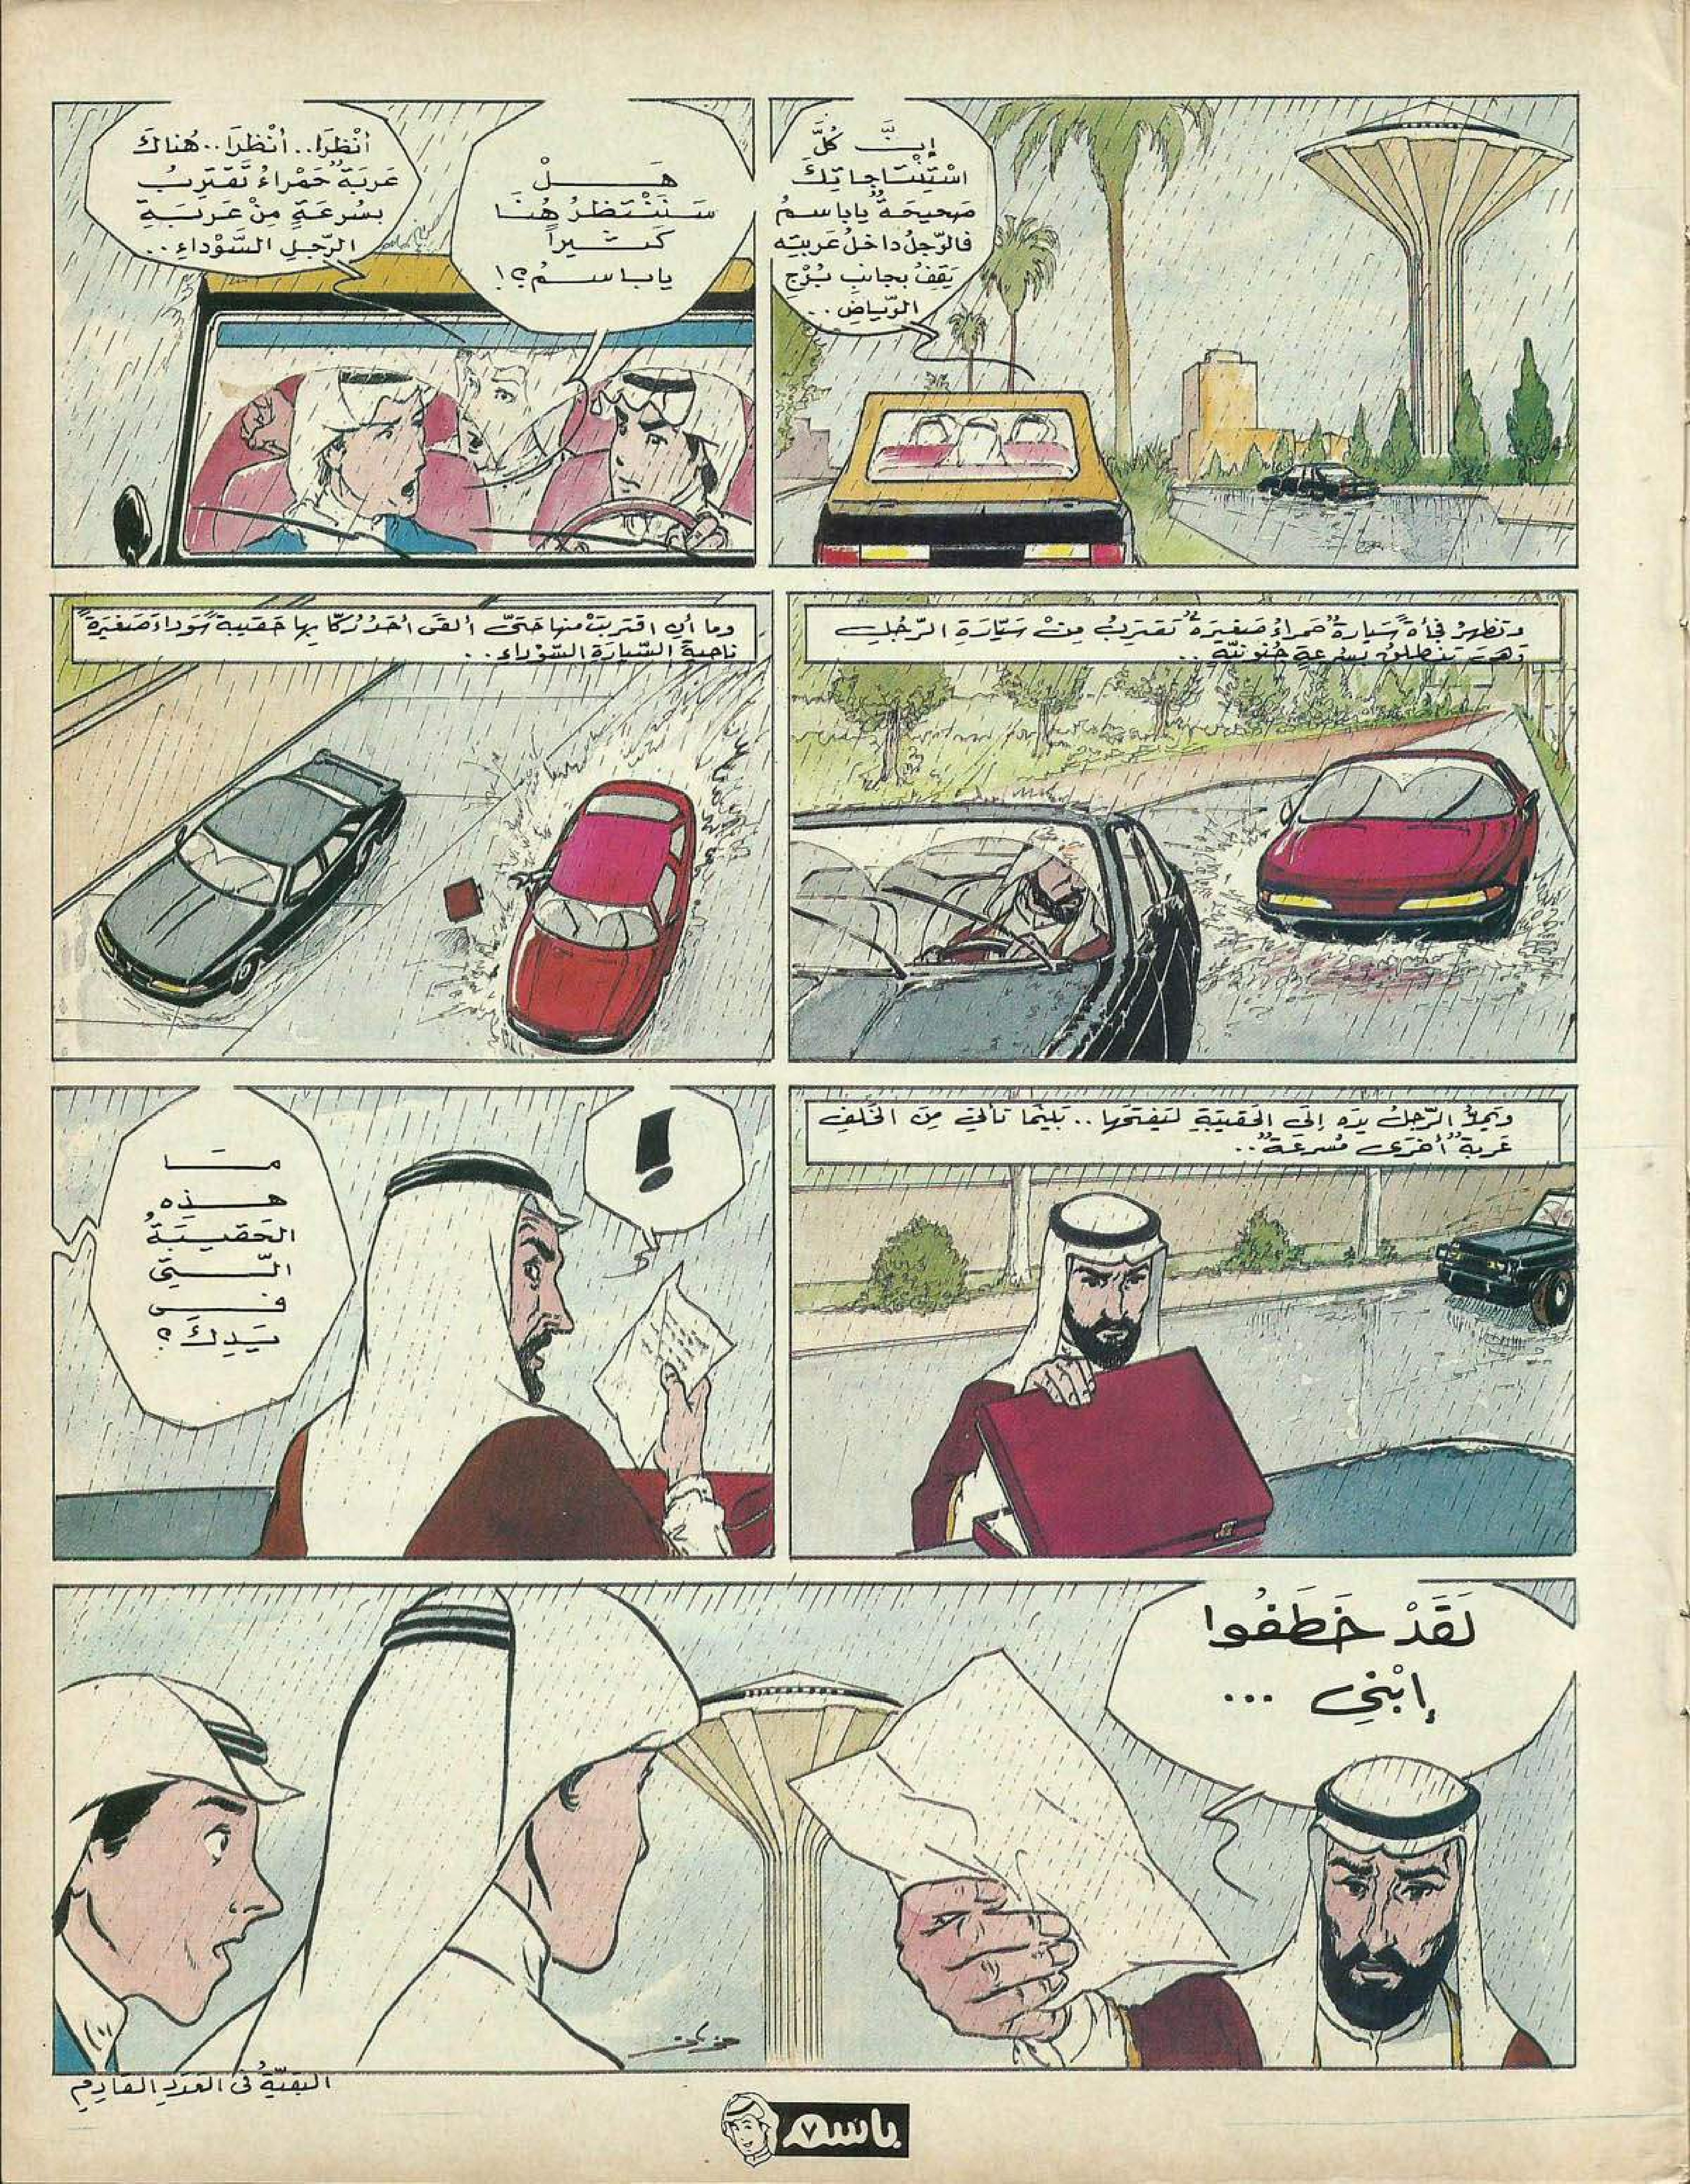 إِنَّ كُلَّ
اسْتِنْتَاجَاتِكَ
صَحِيحَةٌ يا باسمُ
فالرّجلُ داخلُ عَربيتِه
يَقِفُ بجانبِ بُرْجِ
الرّياضِ ..
هَلْ
سَنَنْتَظِرُ هُنَا
كَثيراً
يا باسمُ؟!
أنْظُرَا.. أنْظُرَا.. هُناكَ
عَرَبَةٌ حَمْراءُ تَقْتَرِبُ
بسُرعَةٍ مِنْ عَربَةِ
الرّجلِ السَّوْداءِ ..
وتظهرُ فجأةً سَيارةٌ حمراءُ صَغيرَةٌ تقتربُ مِنْ سَيّارَةِ الرّجُلِ
وَهىَ تنطلقُ بسُرعةٍ جُنونيّةٍ ..
وما أن اقتربتْ منها حَتىَّ ألقى أحَدُ رُكّابِها حَقيبةً سَوداءَ صَغيرَةً
ناحيةَ السّيارَةِ السّوْداءِ ..
ويمدُّ الرّجلُ يدَه إلَى الحَقيبَةِ لِيَفتَحَها .. بَينَما تأتي مِنَ الخَلفِ
عَربةٌ أخرَى مُسرعَةٌ ..
!
مَا
هذِه
الحَقيبَةُ
الّتِي
فى
يَدِكَ؟
لَقَدْ خَطَفُوا
إبْنِي ...
البَقيّةُ فى العَدَدِ القَادِمِ
باسم
٧